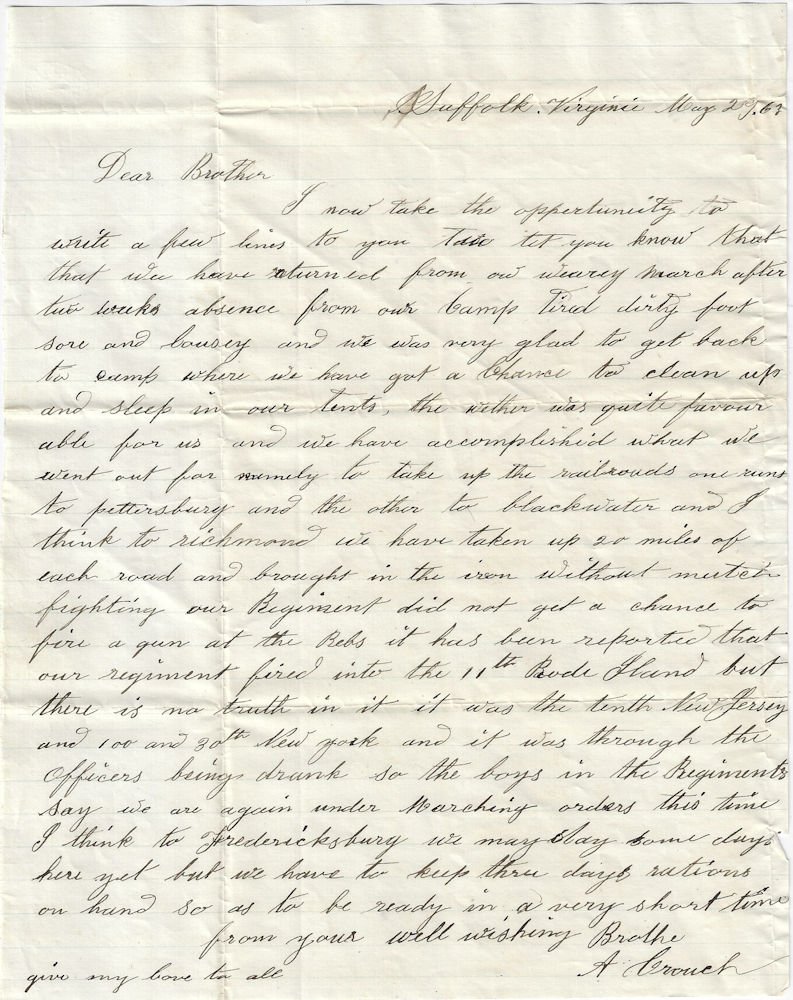 Suffolk. Virginie May 29. 63
Dear Brother
I now take the oppertuniity to
write a few lines to you too let you know that
that we have returned from our wearey march after
two weeks absence from our Camp Tired dirty foot
sore and lousey and we was very glad to get back
to camp where we have got a Chance to clean up
and sleep in our tents, the wether was quite favour
able for us and we have accomplishid what we
went out for namely to take up the railroads one runs
to pettersburg and the other to blackwater and I
think to richmond we have taken up 20 miles of
each road and brought in the iron without mutch
fighting our Regiment did not get a chance to
fire a gun at the Rebs it has been reported that
our regiment fired into the 11th Rode Iland but
there is no truth in it it was the tenth New Jersey
and 100 and 30th New york and it was through the
Officers being drunk so the boys in the Regiments
say we are again under Marching orders this time
I think to Fredericksburg we may stay some days
here yet but we have to keep three days rations
on hand so as to be ready in a very short time
from your well wishing Brothe
give my love to all A Crouch